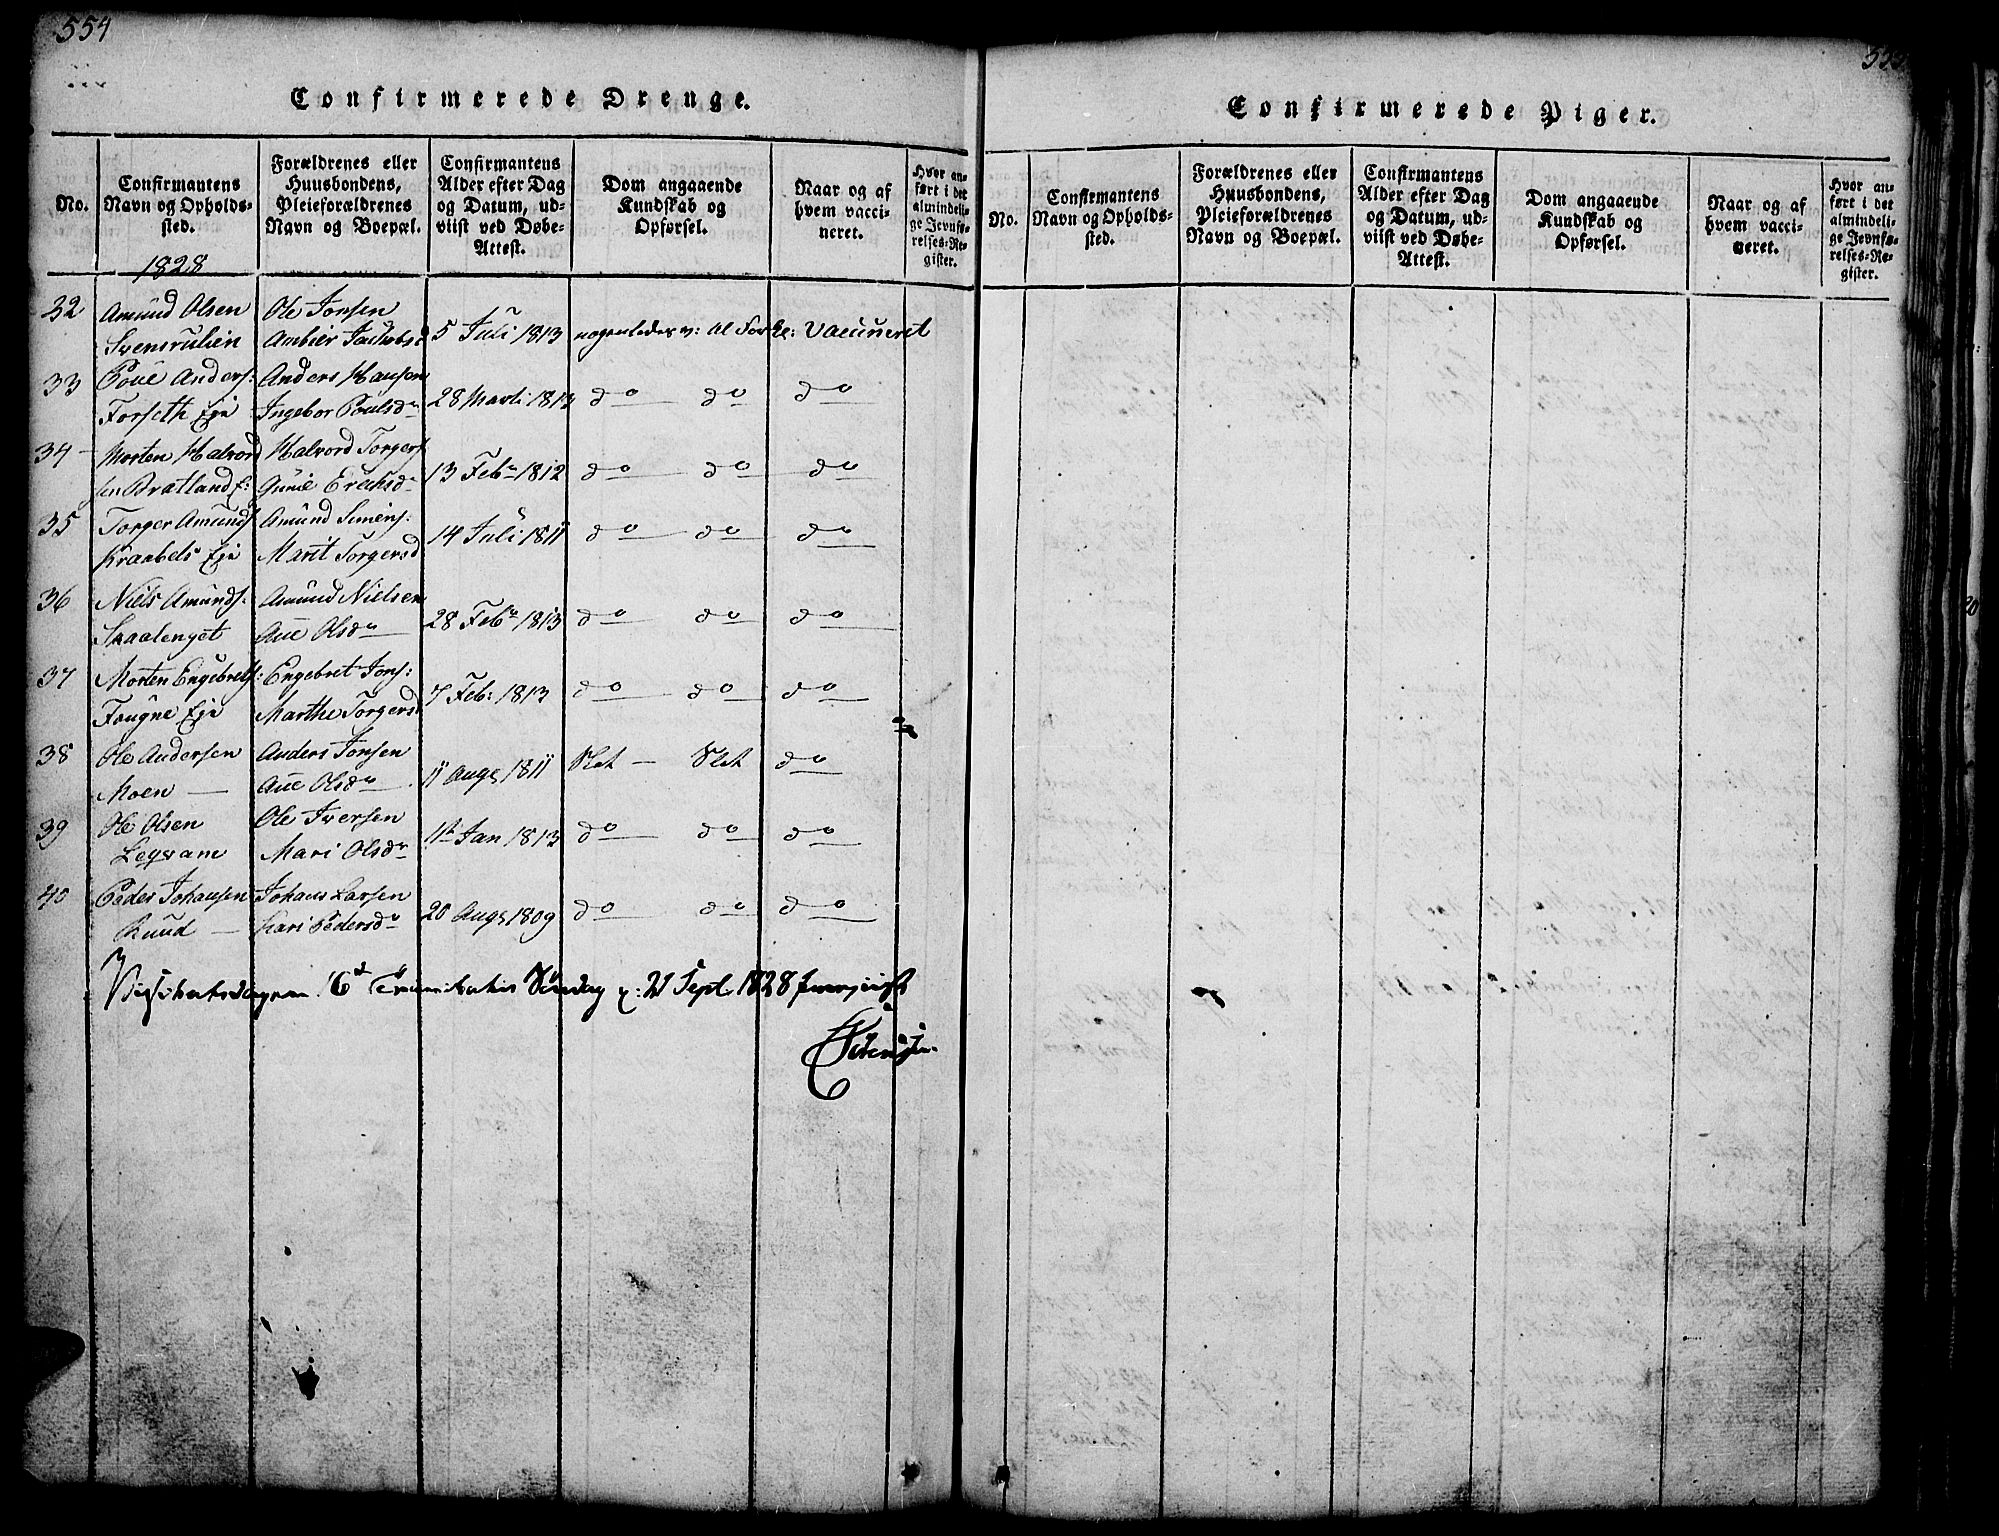 554
Confirmerede Drenge.
No.
Confirmantens Navn og Opholds-sted.
Forældrenes eller Huusbondens, Pleieforældrenes Navn og Boepæl.
Confirmantens Alder efter Dag og Datum, ud-viist ved Døbe-Attest.
Dom angaaende Kundskab og Opførsel.
Naar og af hvem vacci-neret.
Hvor an-ført i det almindeli-ge Jevnfø-relses-Re-gister.
1828
32 Amund Olsen Ole Jonsen
5 Juli 1813 Vaccineret
33 Povel Anders: Anders Hansen
Forseth Eje Ingebor Poulsdr 28 Marti 1813 do do do
34 Morten Halvord Halvord Torgers
sen Bratland E: Erichsdr 13 Febr 1812 do do do
35 Torger Amunds Amund Simens:
Kraabels Eje Marit Torgersd 14 Juli 1811 do do do
36 Niels Amunds: Amund Nielsen
Skaalenget Ane Olsdr 28 Febr 1813 do do do
37 Morten Engebrets: Engebret Jons:
Fougne Eje Marthe Torgersd 7 Feb: 1813 do do do
38 Ole Andersen Anders Jonsen
Moen Ane Olsdr 11 Aug 1811 Slet Slet do
39 Ole Olsen Ole Iversen
Mari Olsdr Jan 1813 do do do
40 Peder Johansen Johans Larsen
Ruud Kari Pedersdr 20 Aug 1809 do do do
Trinitatis Søndag 21 Sept 1828
555
Confirmerede Piger.
No.
Confirmantens Navn og Opholds-sted.
Forældrenes eller Huusbondens, Pleieforældrenes Navn og Boepæl.
Confirmantens Alder efter Dag og Datum, ud-viist ved Døbe-Attest.
Dom angaaende Kundskab og Opførsel.
Naar og af hvem vacci-neret.
Hvor an-ført i det almindeli-ge Jevnfø-relses-Re-gister.